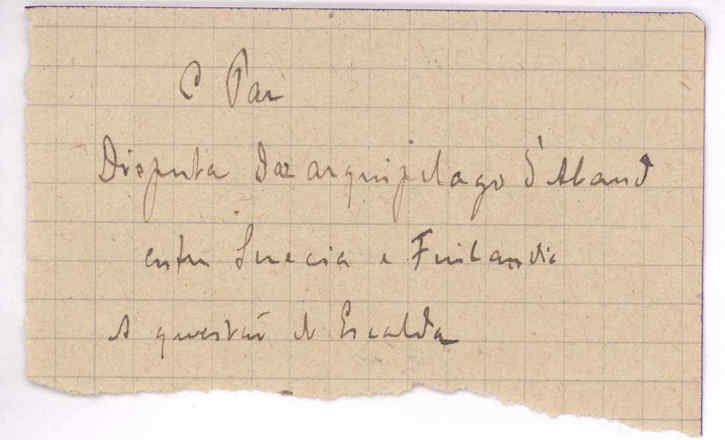 C Paz
Disputa do arquipelago d'Aland
entre Suecia e Finlandia
A questão do Escalda